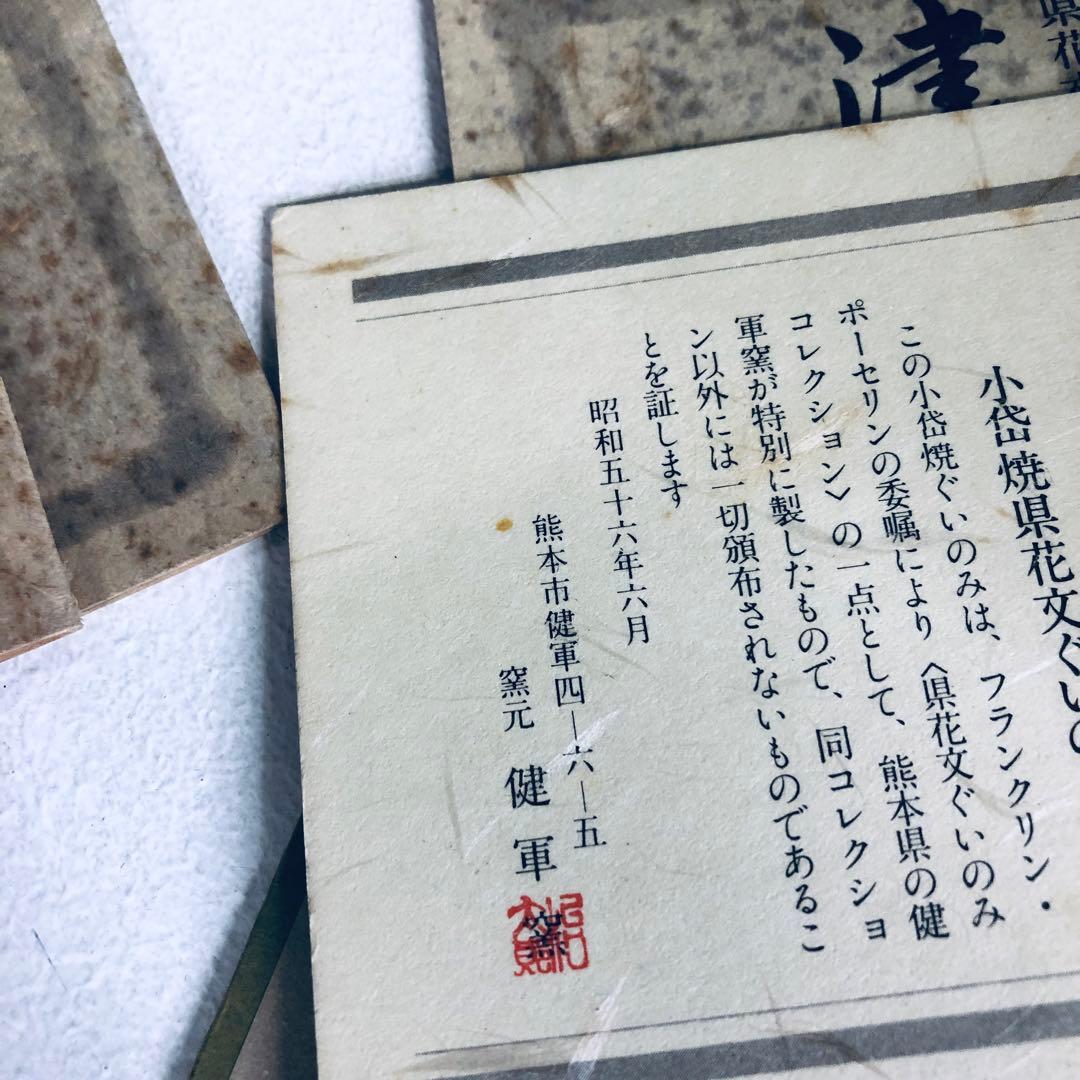 県花
津
小岱焼県花文ぐい
この小岱焼ぐいのみは、フランクリン・
ポーセリンの委嘱により〈県花文ぐいのみ
コレクション〉の一点として、熊本県の健
軍窯が特別に製したもので、同コレクショ
ン以外には一切頒布されないものであるこ
とを証します
昭和五十六年六月
熊本市健軍四―六―五
窯元 健軍窯